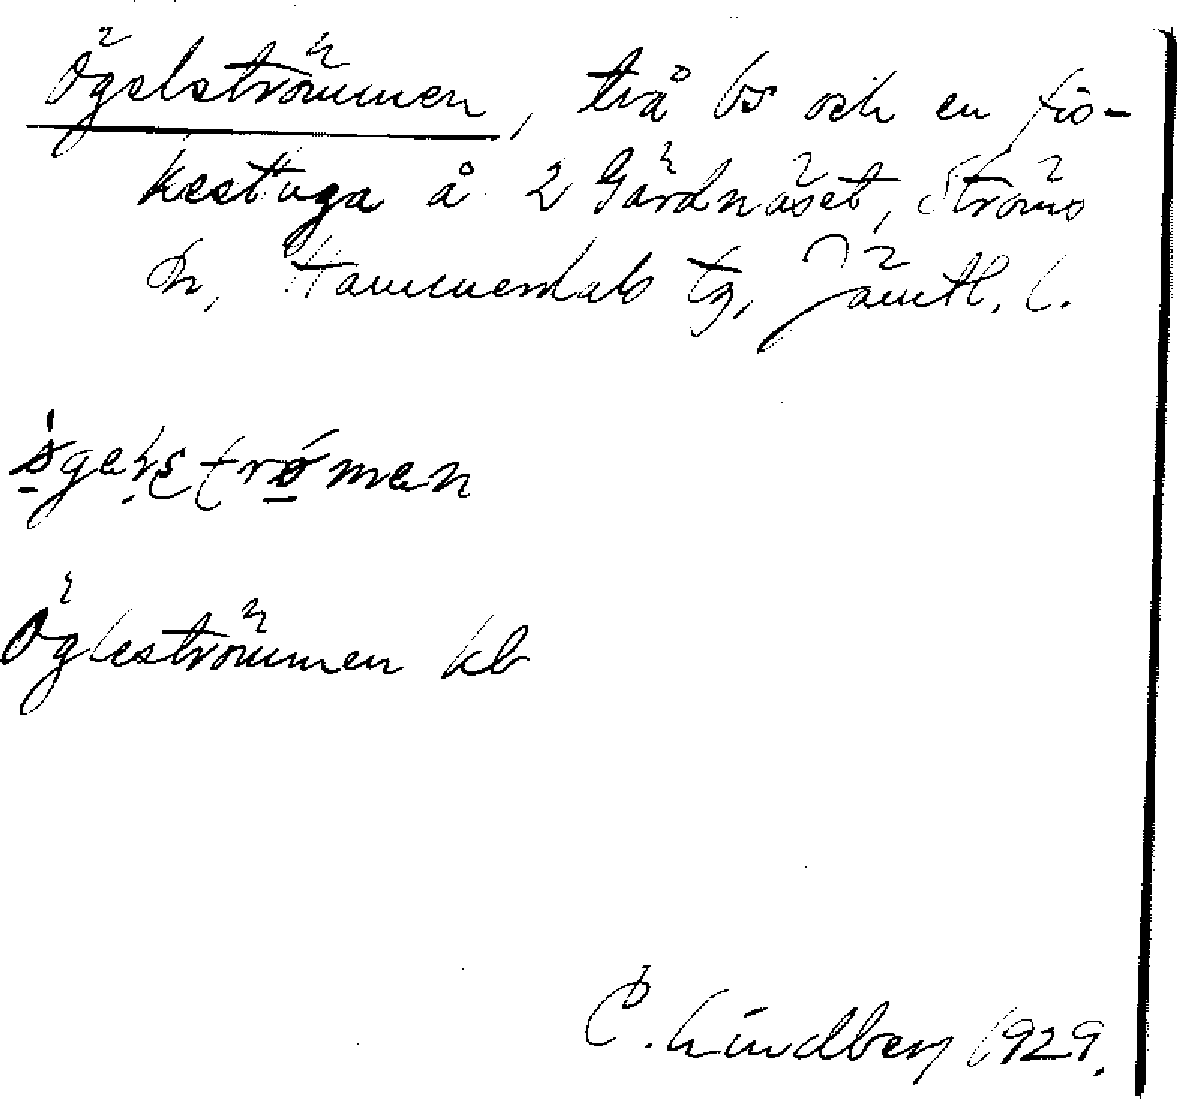 Ögelströmmen, två bs och en fis-
kestuga å 2 Gärdnäset, Ströms
sn, Hammerdals tg, Jämtl. l.
ö̀gelstrǿmen
Ögleströmmen kb
C. Lindberg 1929.